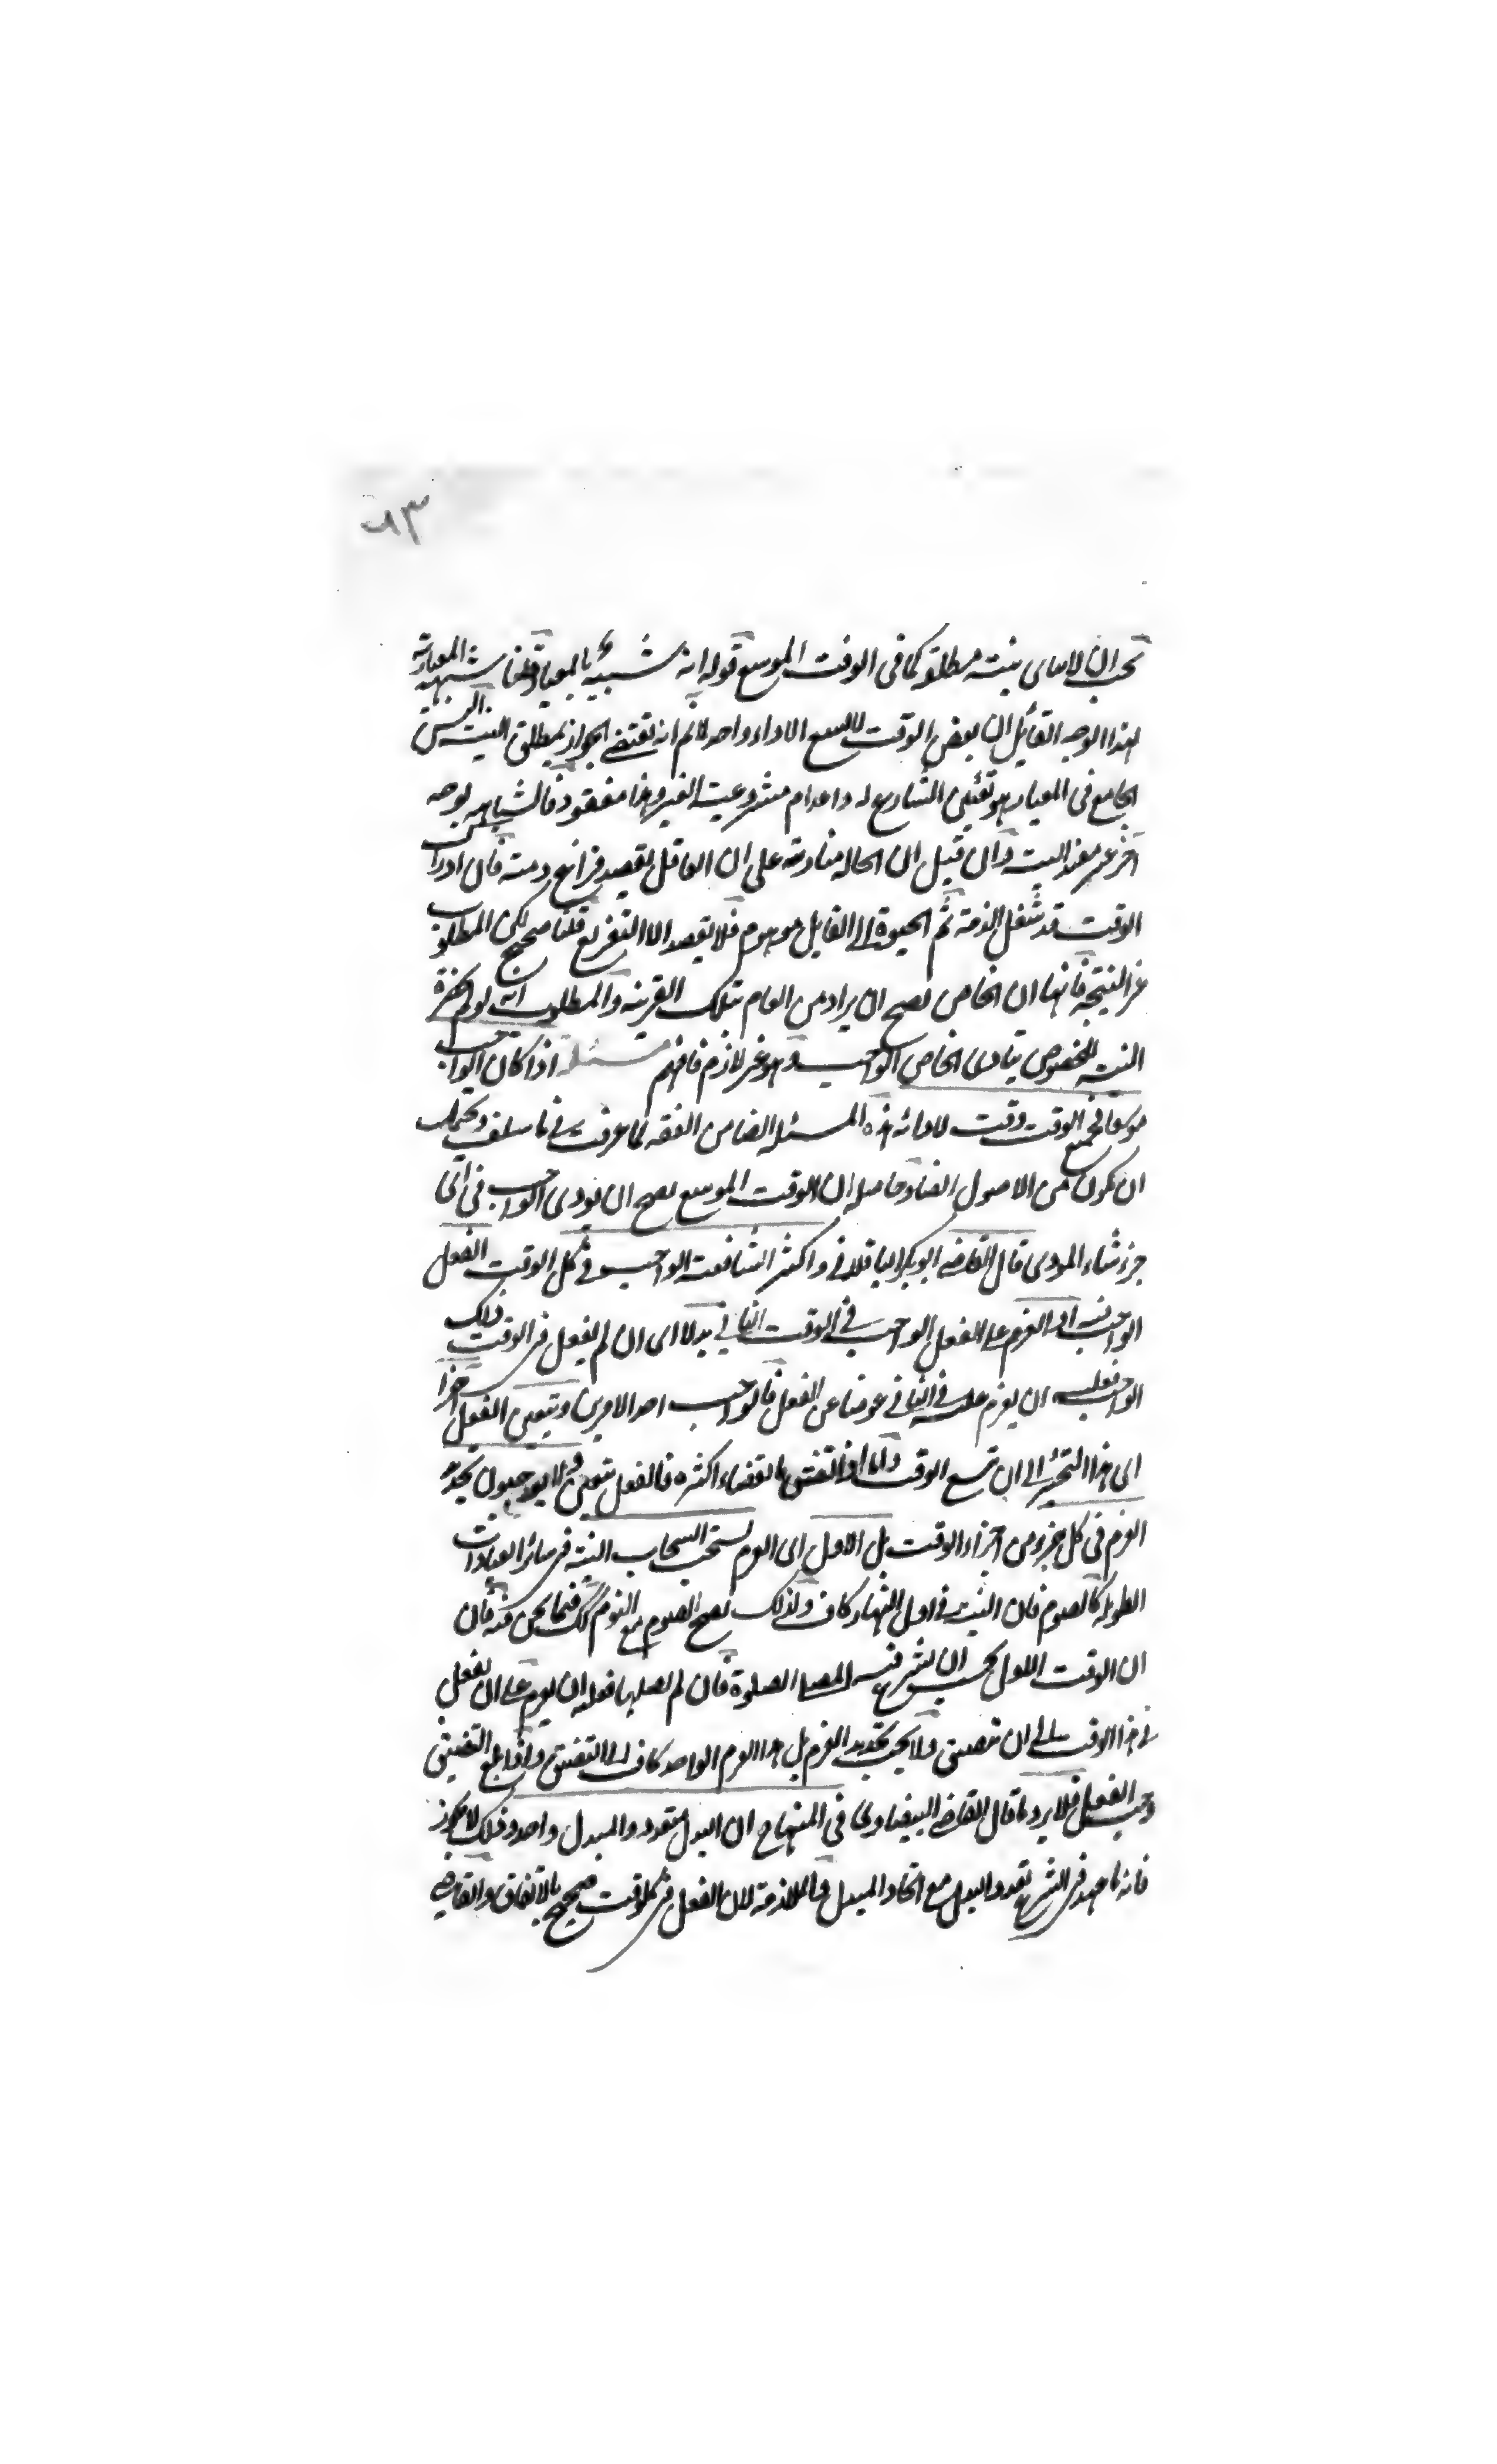 ٩٣
يجب ان لا يتادى بنية مطلقة كما فى الوقت الموسع قوله انه شبيه بالمعيار قلنا شبهه المعيارية
بهذا الوجه القائل ان بعض الوقت لا يسع الا لاداء واحد لا نم انه يقتضى الجواز بمطلق النية اليس
الجامع فى المعيار هو تعيين الشارع له واعدام مشروعية الغير وهذا مفقود فالمشابهة بوجه
آخر غير مفيد البتة وان قيل ان الحالة منادية على ان العاقل يقصد فراغ ذمته فان ادراك
الوقت قد شغل الذمة ثم الحيوة الى القابل موهوم فلا يقصد الا التفريغ قلنا صحيح لكن المطلوب
غير النتيجة فانها ان الخاص يصح ان يراد من العام بتلك القرينة والمطلوب انه لو لم يحضره
النية للخصوص يتادى الخاص الواجب وهو غير لازم فافهم مسئلة اذا كان الواجب
موسعا فجميع الوقت وقت لادائه هذه المسئلة ايضا من الفقه لما عرفت فى ما سلف ويحتمل
ان يكون من الاصول ايضا وحاصله ان الوقت الموسع يصح ان يودى الواجب فى اى
جزء شاء المودى قال القاضى ابو بكر الباقلانى واكثر الشافعية الواجب فى كل الوقت الفعل
الواجب فيه او العزم على الفعل الواجب فى الوقت الثانى بدلا اى ان لم يفعل فى الوقت ذلك
الواجب فعليه ان يعزم عليه فى الثانى عوضا عن الفعل فالواجب احد الامرين ويتعين الفعل آخرا
اى هذا التخيير الى ان يسع الوقت واما اذا تضيق بانقضاء اكثره فالفعل متعين ولا يوجبون تجديد
العزم فى كل جزء من اجزاء الوقت بل الاول اى العزم ينسحب انسحاب النية فى سائر العبادات
الطويلة كالصوم فان النية فى اول النهار كاف ولذلك يصح الصوم مع النوم كك فيما نحن فيه فان
ان الوقت الاول يجب ان يشرع فيه المصلى الصلوة فان لم يصلها فعليه ان يعزم على ان يفعل
فى هذا الوقت الى ان يتضيق ولا يجب تجديد العزم بل هذا العزم الواحد كاف الى التضيق واذا بلغ التضيق
وجب الفعل فلا يرد ما قال القاضى البيضاوى فى المنهاج ان البدل متعدد والمبدل واحد وذلك لا يجوز
فانه ما عهد فى الشرع تعدد البدل مع اتحاد المبدل والملازمة لان الفعل فى كل وقت صحيح بالاتفاق والقاضى